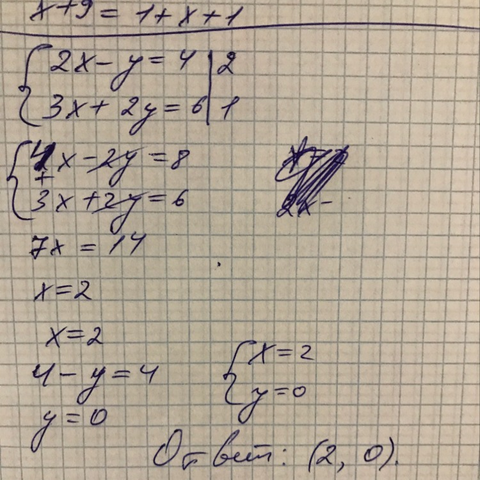 x+9 = 1+x+1
{2x-y=4 | 2
{3x+2y=6 | 1
{4x-2y=8
+
{3x+2y=6
2x-
7x = 14
x=2
x=2
4-y=4
y=0
{x=2
{y=0
Ответ: (2, 0).